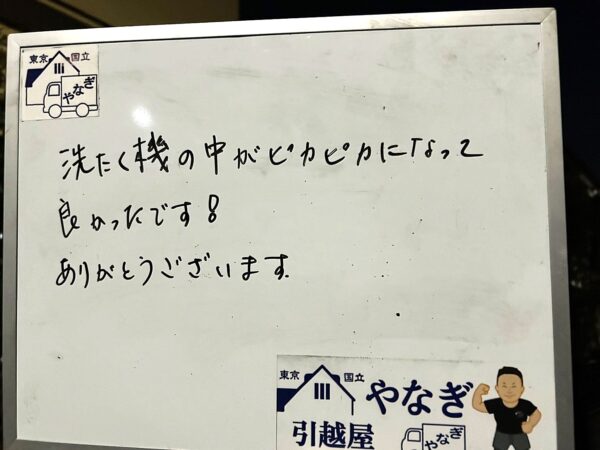 東京 国立
やなぎ
洗たく機の中がピカピカになって
良かったです!
ありがとうございます.
東京 国立 やなぎ
引越屋 やなぎ